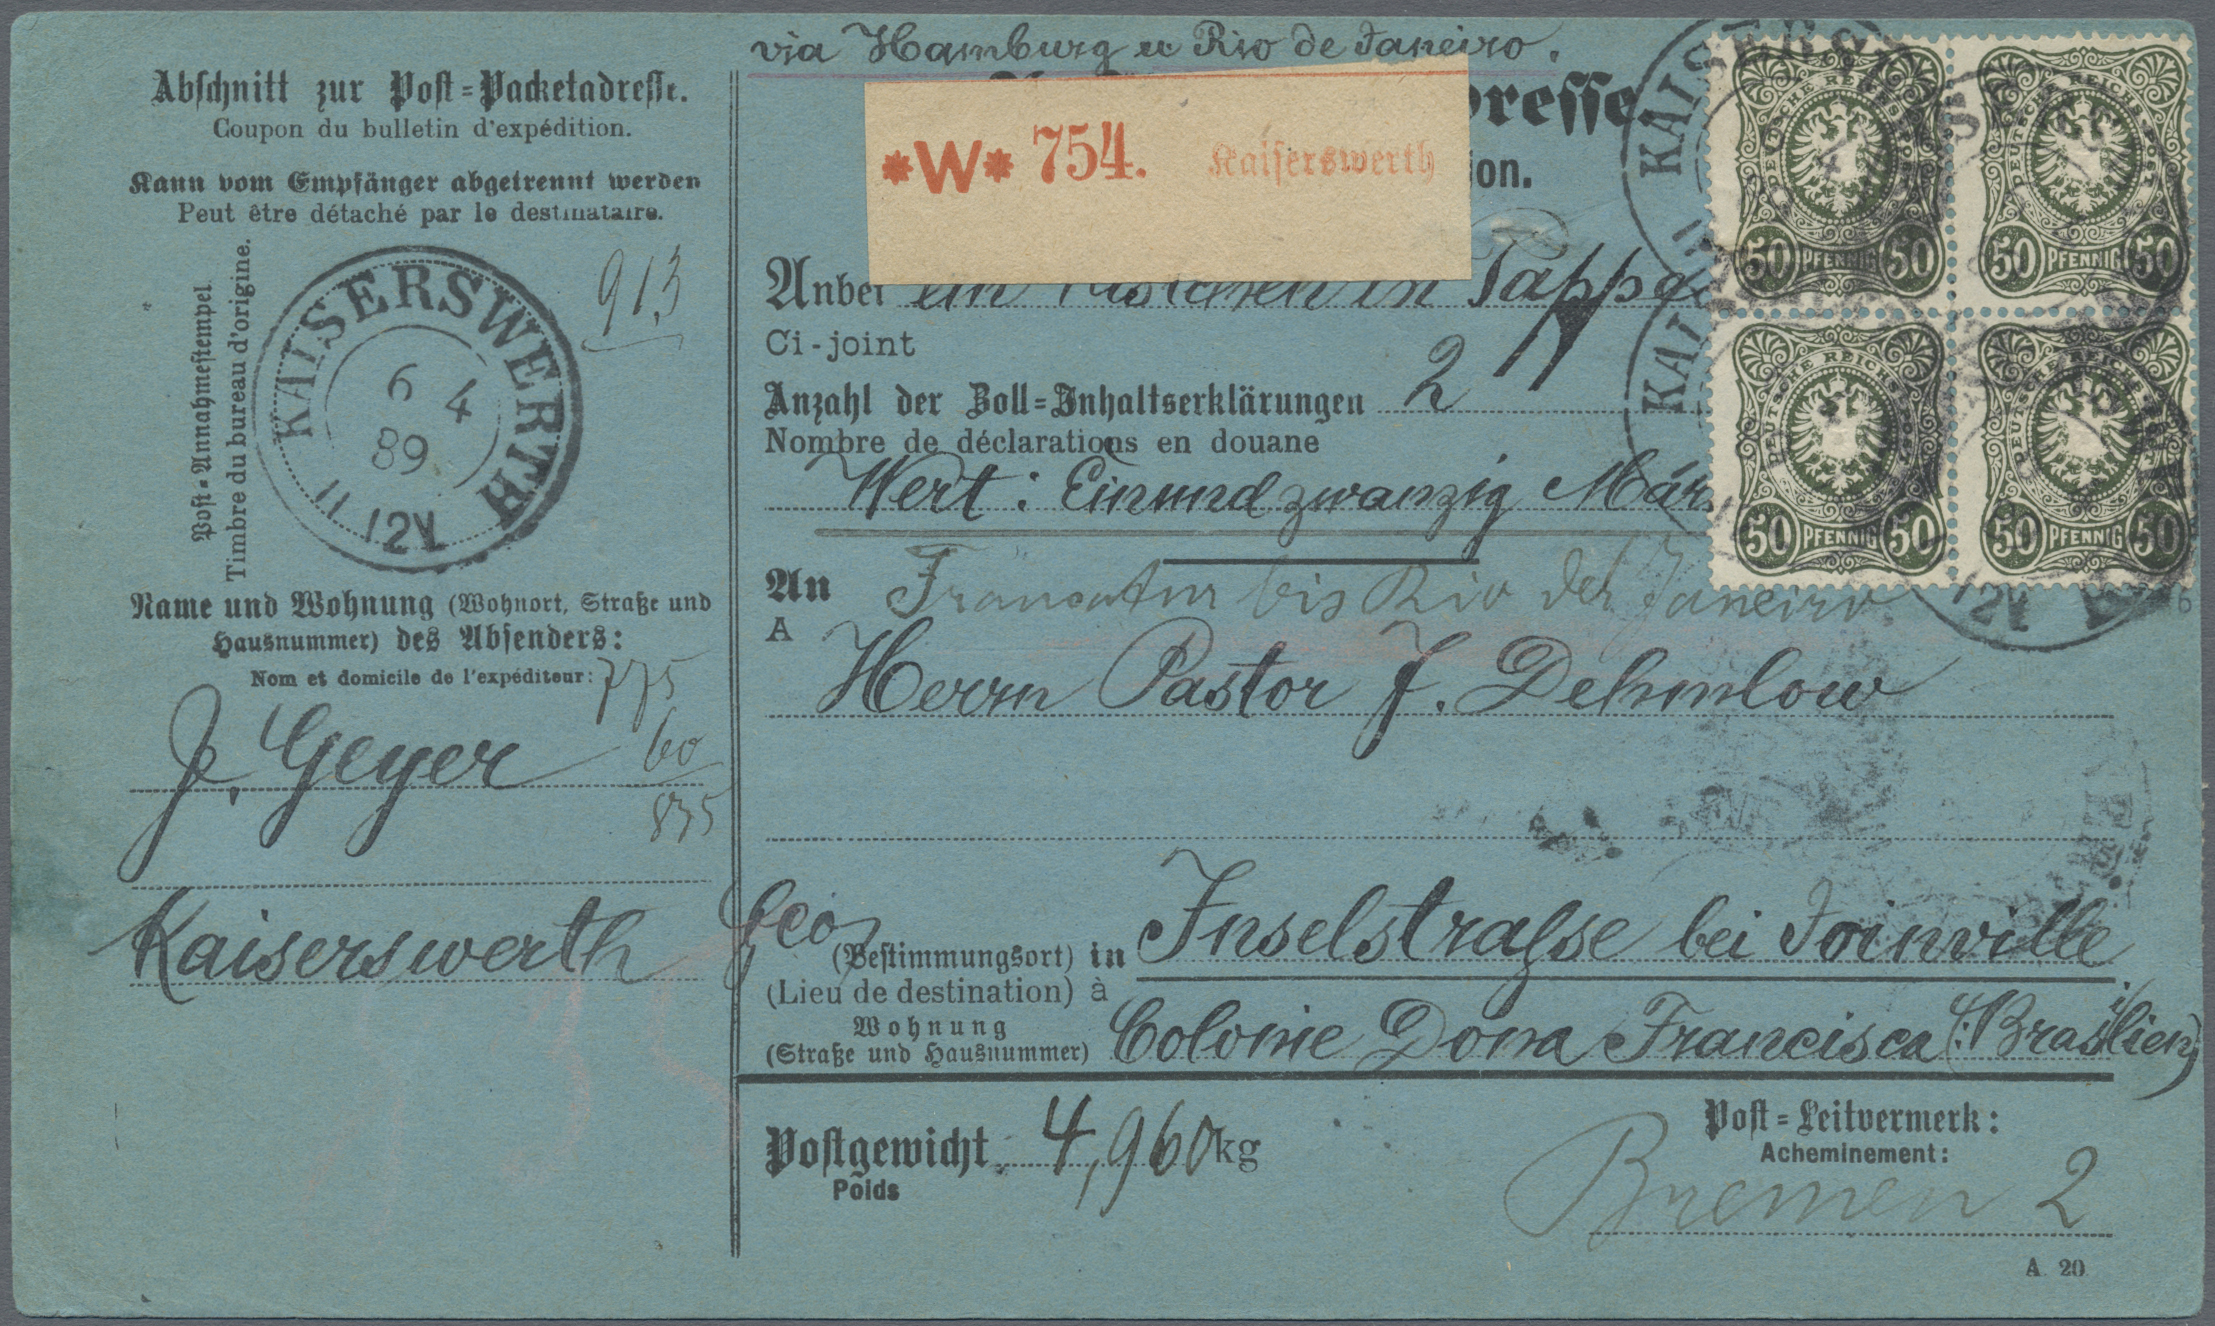 via Hamburg u Rio de Janeiro.
Abschnitt zur Post-Packetadresse.
Coupon du bulletin d'expédition.
Kann vom Empfänger abgetrennt werden
Peut être détaché par le destinataire.
Post-Annahmestempel
Timbre du bureau d'origine.
KAISERSWERTH
6 4
89
11 12V
913
Name und Wohnung (Wohnort, Straße und
Hausnummer) des Absenders:
Nom et domicile de l'expéditeur:
775
60
835
J. Geyer
Kaiserswerth
resse
ion.
*W* 754. Kaiserswerth
Anbei ein Kistchen in Pappe
Ci-joint
Anzahl der Zoll-Inhaltserklärungen 2
Nombre de déclarations en douane
Wert: Einundzwanzig Mark
An
A
Francatur bis Rio de Janeiro.
Herrn Pastor J. Dehmlow
(Bestimmungsort) in Inselstraße bei Joinville
(Lieu de destination) à
Wohnung
(Straße und Hausnummer) Colonie Dona Francisca (:Brasilien)
Postgewicht 4,960 kg
Poids
Post-Leitvermerk:
Acheminement:
Bremen 2
A. 20
KAISERS
DEUTSCHE REICHS-POST
50 PFENNIG 50
DEUTSCHE REICHS-POST
50 PFENNIG 50
KAI
DEUTSCHE REICHS-POST
50 PFENNIG 50
DEUTSCHE REICHS-POST
50 PFENNIG 50
12V